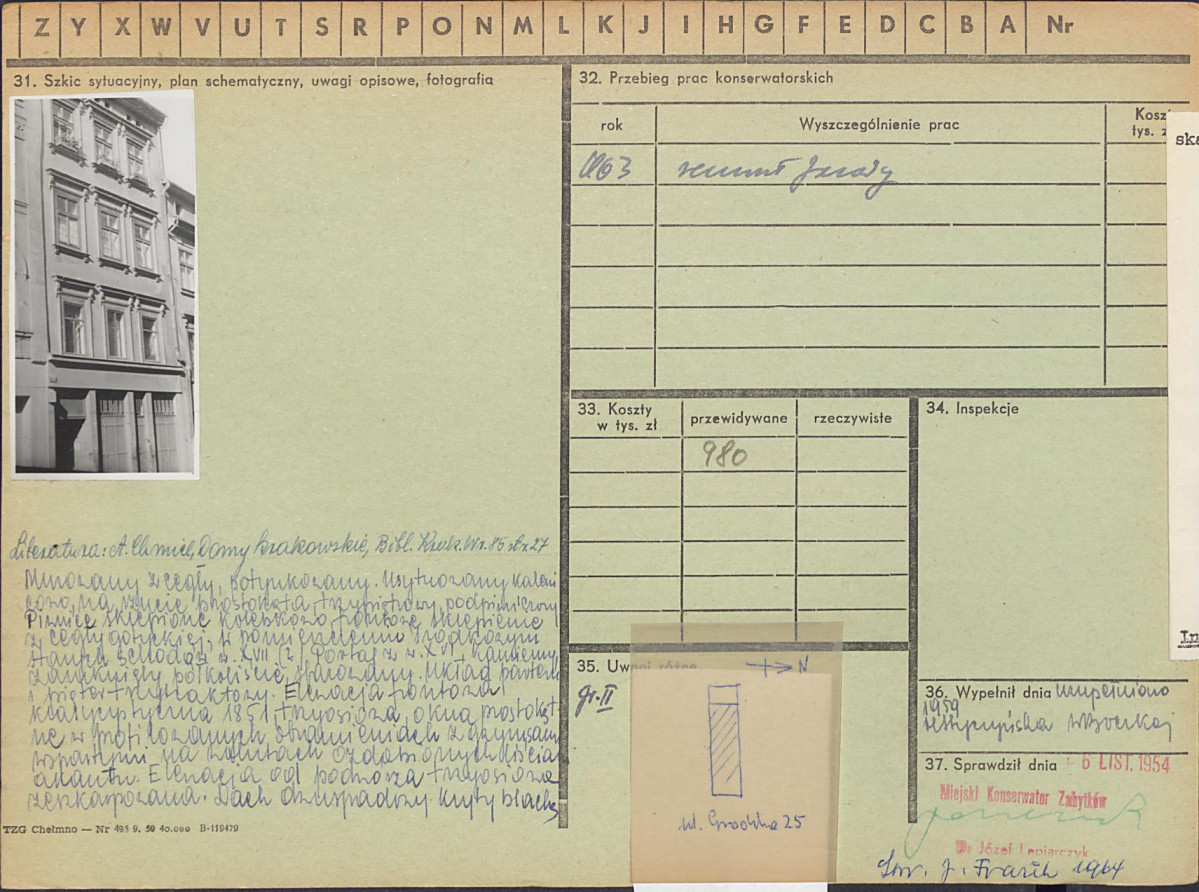 Z Y X W V U T S R P O N M L K J I H G F E D C B A Nr
31. Szkic sytuacyjny, plan schematyczny, uwagi opisowe, fotografia
32. Przebieg prac konserwatorskich
rok Wyszczególnienie prac Kosz
tys. z
ska
1963 remont fasady
33. Koszty
w tys. zł
przewidywane rzeczywiste
980
34. Inspekcje
Literatura: A. Chmiel, Domy krakowskie, Bibl. Krak. Nr. 85 str. 27
Murowany z cegły, potynkowany. Usytuowany kaleni
cowo, na rzucie prostokąta, trzypiętrowy, podpiwniczony
Piwnice sklepione kolebkowo, frontowe sklepienie
z cegły gotyckiej, w pomieszczeniu środkowym
schodów w. XVII (?) Portal z w. XVI kamienny
zamknięty półkoliście, Układ parteru
i pięter trzytraktowy. Elewacja frontowa
klasycystyczna 1851, trzyosiowa, okna prostokąt
ne w profilowanych obramieniach z gzymsami
wspartymi na wolutach ozdobionych liścia
akantu. Elewacja od podwórza trzyosiowa
zeszkarpowana. Dach dwuspadowy kryty blachą
TZG Chełmno — Nr 495 9. 59 40.000 B-119479
35. Uwagi różne
gr. II
N
ul. Grodzka 25
36. Wypełnił dnia uzupełniono
1959
37. Sprawdził dnia - 6 LIST. 1954
Miejski Konserwator Zabytków
Dr Józef Lepiarczyk
1964